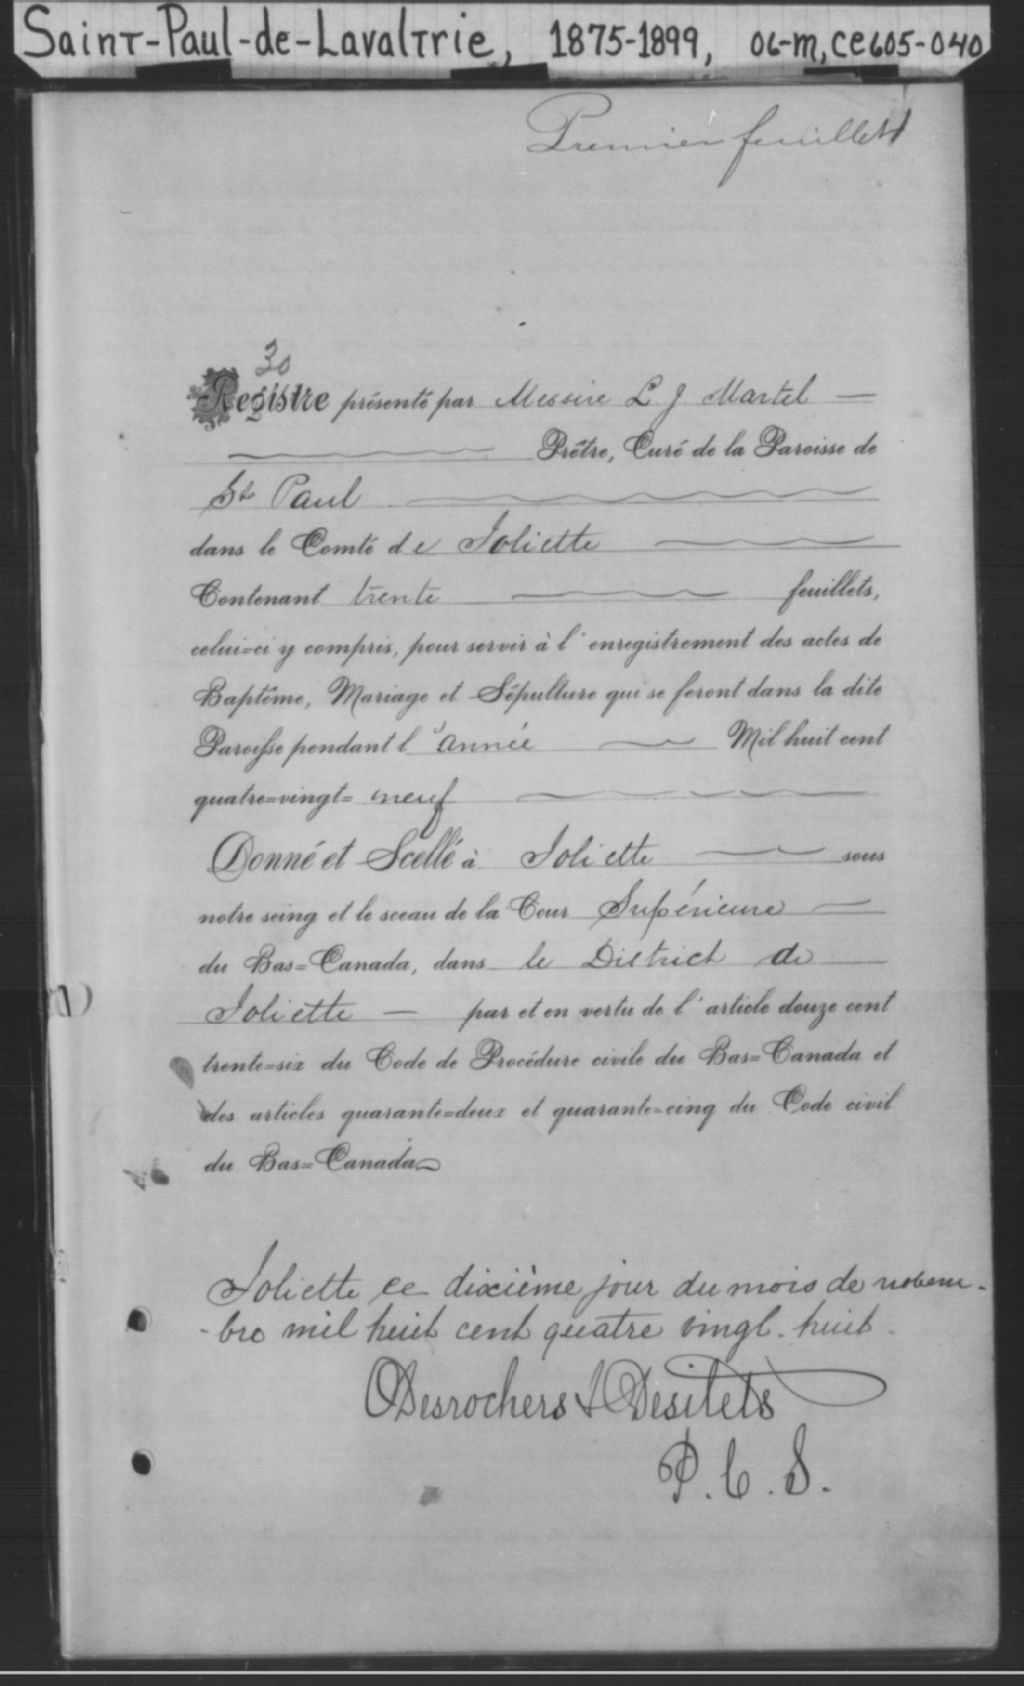 Saint-Paul-de-Lavaltrie, 1875-1899, 06-m, CE605-040
Premier feuillet
30
Registre présenté par Messire L. J. Martel
Prêtre, Curé de la Paroisse de
St Paul
dans le Comté de Joliette
Contenant trente feuillets,
celui-ci y compris, pour servir à l'enregistrement des actes de
Baptême, Mariage et Sépulture qui se feront dans la dite
Paroisse pendant l'année Mil huit cent
quatre-vingt-neuf
Donné et Scellé à Joliette sous
notre seing et le sceau de la Cour Supérieure
du Bas-Canada, dans le District de
Joliette par et en vertu de l'article douze cent
trente-six du Code de Procédure civile du Bas-Canada et
des articles quarante-deux et quarante-cinq du Code civil
du Bas-Canada
Joliette ce dixième jour du mois de novem-
-bre mil huit cent quatre vingt-huit.
Desrochers & Desilets
P. C. S.